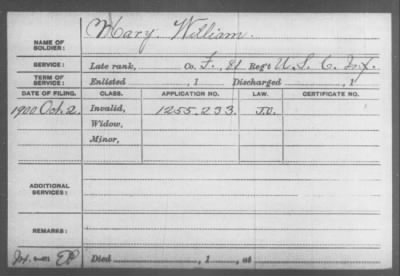 NAME OF SOLDIER: Mary. William.
SERVICE: Late rank, Co. F., 81 Reg't U. S. C. Inf.
TERM OF SERVICE: Enlisted , 1 Discharged , 1
DATE OF FILING. CLASS. APPLICATION NO. LAW. CERTIFICATE NO.
1900 Oct. 2. Invalid, 1255.233. J.O.
Widow,
Minor,
ADDITIONAL SERVICES:
REMARKS:
Died , 1 , at